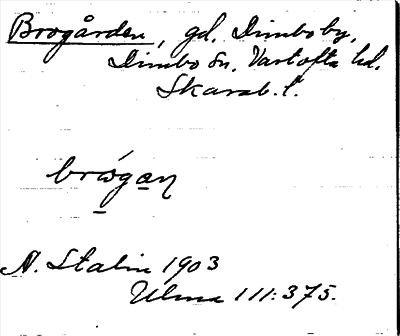 Brogården, gd. Dimboby,
Dimbo sn. Vartofta hd.
Skarab. l.
brógan
N. Stalin 1903
Ulma 111:375.